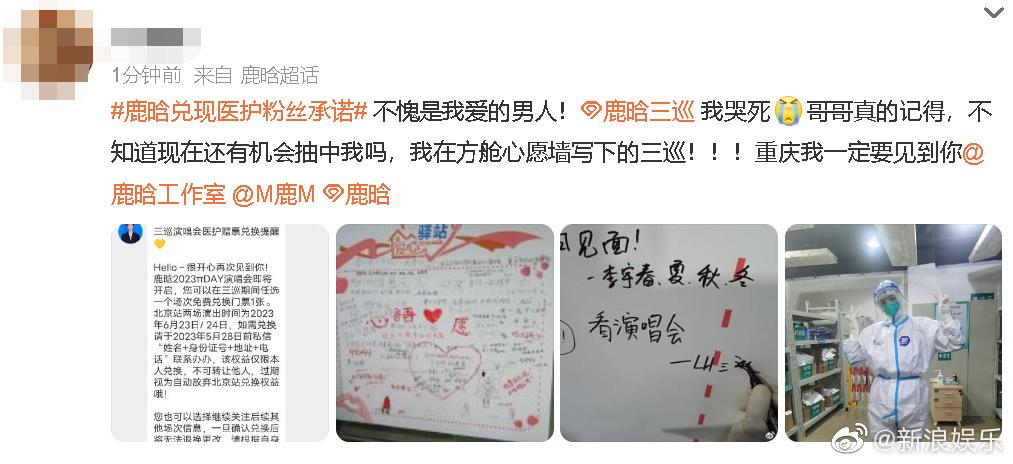 1分钟前 来自 鹿晗超话
#鹿晗兑现医护粉丝承诺# 不愧是我爱的男人！鹿晗三巡 我哭死😭哥哥真的记得，不
知道现在还有机会抽中我吗，我在方舱心愿墙写下的三巡！！！重庆我一定要见到你@
鹿晗工作室 @M鹿M 鹿晗
三巡演唱会医护赠票兑换提醒
💛
Hello～很开心再次见到你！
鹿晗2023πDAY演唱会即将
开启，您可以在三巡期间任选
一个场次免费兑换门票1张。
北京站两场演出时间为2023
年6月23日/24日，如需兑换
请于2023年5月28日前私信
“姓名+身份证号+地址+电
话”联系办办，该权益仅限本
人兑换，不可转让他人，过期
视为自动放弃北京站兑换权益
哦！
您也可以选择继续关注后续其
他场次信息，一旦确认兑换后
将无法退换更改，请根据自身
驿站
心語 愿
见面！
—李宇春、夏、秋、冬
看演唱会
—LH三
@新浪娱乐